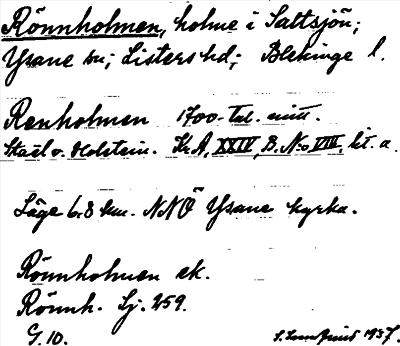 Rönnholmen, holme i Saltsjön;
Ysane sn; Listers hd; Blekinge l.
Renholmen 1700-tal. mitt.
Staël v. Holstein. Kr. A, XXIV, B. No VIII, lit. a.
Läge 6.8 km. NNÖ Ysane kyrka.
Rönnholmen ek.
Rönnh. Lj. 259.
G. 10. 1937.